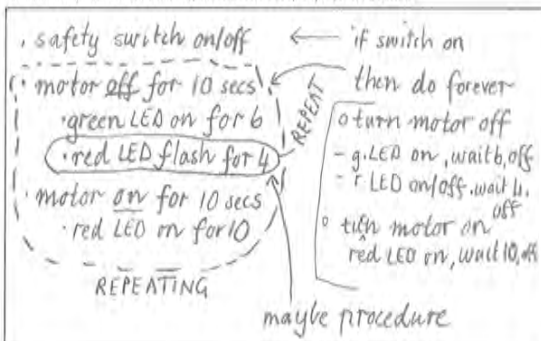 . safety switch on/off ← if switch on
· motor off for 10 secs
· green LED on for 6
· red LED flash for 4
· motor on for 10 secs
· red LED on for 10
REPEATING
REPEAT
then do forever
o turn motor off
- g. LED on, wait 6, off
- r LED on/off. wait 4.
o turn motor on off
red LED on, wait 10, off
maybe procedure